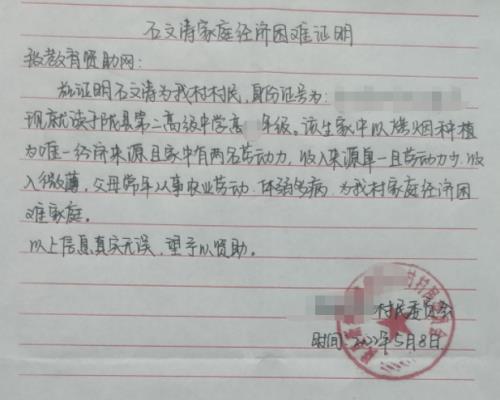 石文涛家庭经济困难证明
致教育资助网：
兹证明石文涛为我村村民，身份证号为：
现就读于陇县第二高级中学高 年级。该生家中以烤烟种植
为唯一经济来源且家中有两名劳动力，收入来源单一且劳动力少，收
入微薄，父母常年从事农业劳动，体弱多病，为我村家庭经济困
难家庭。
以上信息真实无误，望予以资助。
村民委员会
时间：2022年5月8日
村村民委员会